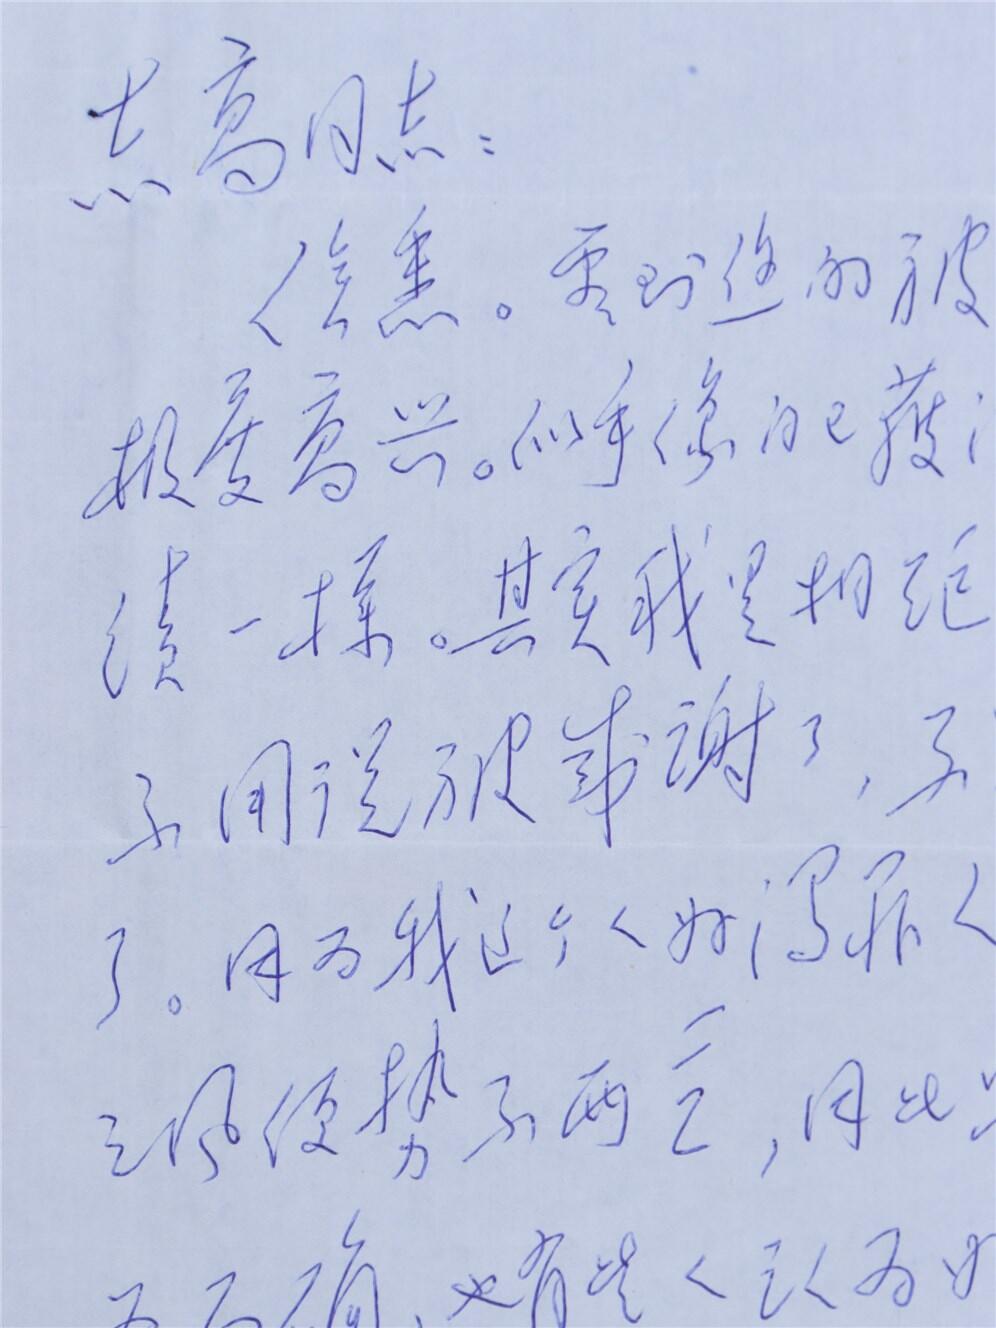 志高同志：
信悉。受到您的被
极度高兴。似乎像自己获
续一样。其实我是相距
不用说被感谢了，
了。因为我这个人好得罪人
之风便势不两立，因此
不正确，也有些人认为